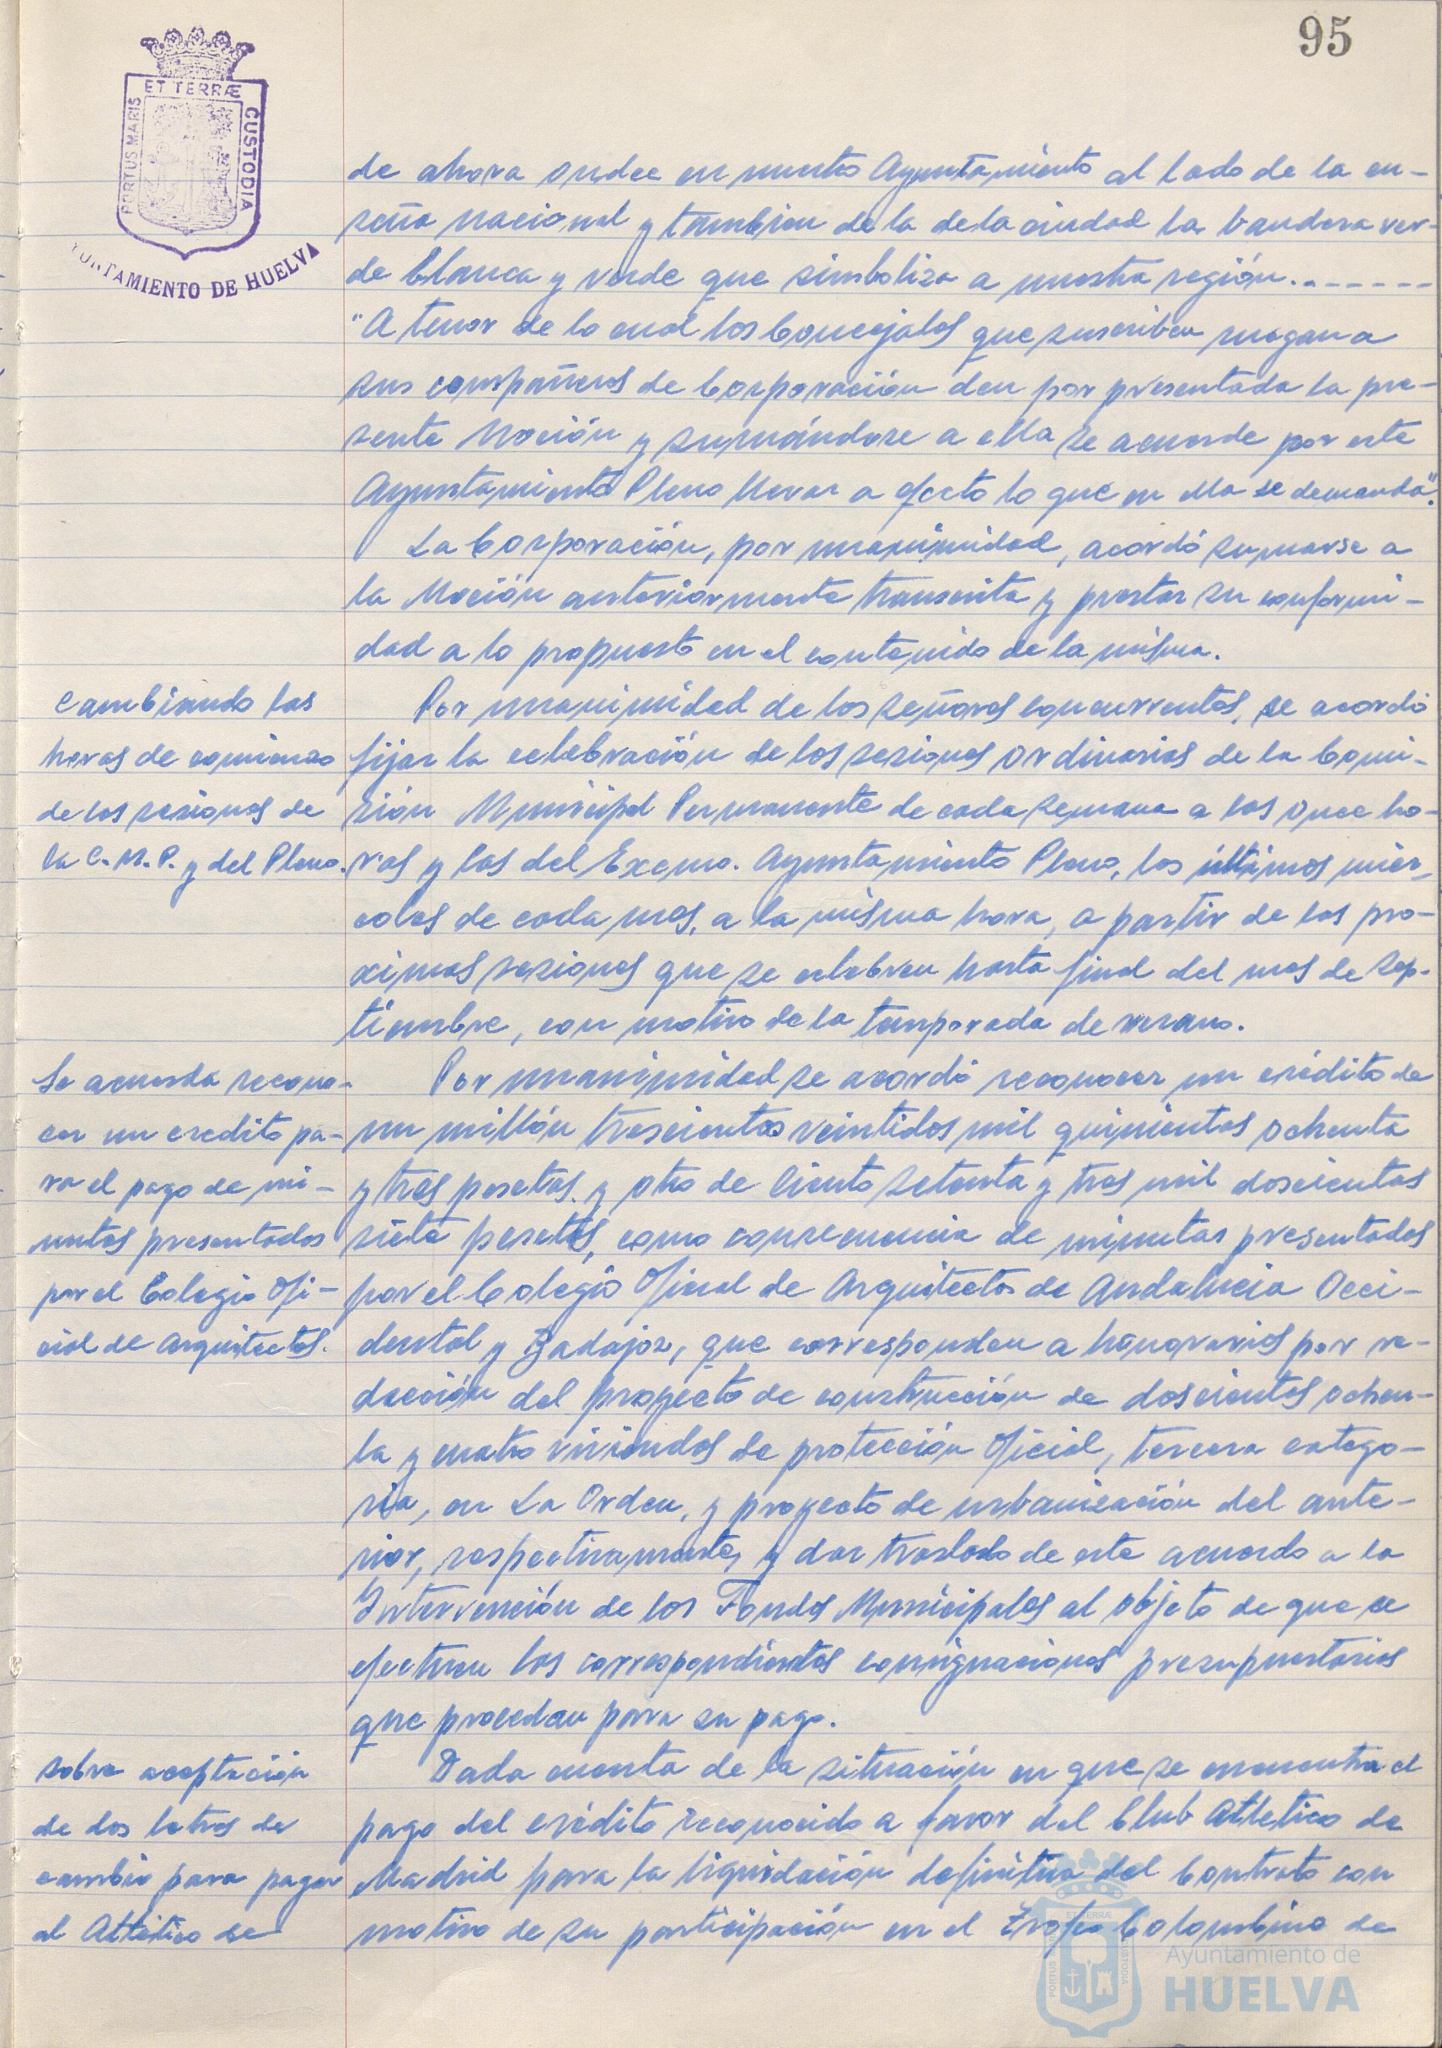 95
ET TERRÆ
PORTUS MARIS
CUSTODIA
AYUNTAMIENTO DE HUELVA
de ahora ondee en nuestro Ayuntamiento al lado de la en-
seña nacional y tambien de la de la ciudad la bandera ver-
de blanca y verde que simboliza a nuestra región.-------
"A tenor de lo cual los Concejales que suscriben ruegan a
sus compañeros de Corporación den por presentada la pre-
sente Moción y sumándose a ella se acuerde por este
Ayuntamiento Pleno llevar a efecto lo que en ella se demanda".
La Corporación, por unanimidad, acordó sumarse a
la Moción anteriormente transcrita y prestar su conformi-
dad a lo propuesto en el contenido de la misma.
Cambiando las
horas de comienzo
de las sesiones de
la C.M.P. y del Pleno.
Por unanimidad de los señores concurrentes, se acordó
fijar la celebración de las sesiones ordinarias de la Comi-
sión Municipal Permanente de cada semana a las once ho-
ras y las del Excmo. Ayuntamiento Pleno, los últimos miér-
coles de cada mes, a la misma hora, a partir de las pro-
ximas sesiones que se celebren hasta final del mes de Sep-
tiembre, con motivo de la temporada de verano.
Se acuerda recono-
cer un credito pa-
ra el pago de mi-
nutas presentadas
por el Colegio Ofi-
cial de Arquitectos.
Por unanimidad se acordó reconocer un crédito de
un millón trescientas veintidos mil quinientas ochenta
y tres pesetas, y otro de ciento setenta y tres mil doscientas
siete pesetas, como consecuencia de minutas presentadas
por el Colegio Oficial de Arquitectos de Andalucia Occi-
dental y Badajoz, que corresponden a honorarios por re-
dacción del proyecto de construcción de doscientas ochen-
ta y cuatro viviendas de protección Oficial, tercera catego-
ria, en La Orden, y proyecto de urbanización del ante-
rior, respectivamente, y dar traslado de este acuerdo a la
Intervención de los Fondos Municipales al objeto de que se
efectuen las correspondientes consignaciones presupuestarias
que procedan para su pago.
Sobre aceptación
de dos letras de
cambio para pagar
al Atlético de
Dada cuenta de la situación en que se encuentra el
pago del crédito reconocido a favor del Club Atlético de
Madrid para la liquidación definitiva del Contrato con
motivo de su participación en el Trofeo Colombino de
ET TERRÆ
PORTUS
CUSTODIA
Ayuntamiento de
HUELVA